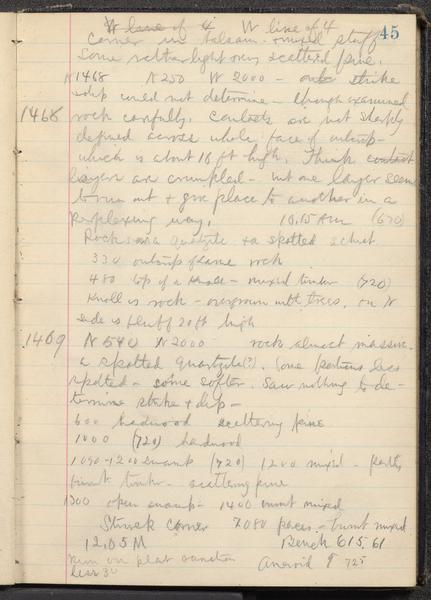 W line of 4 W line of 4 45
corner in balsam - mixed stuff
Some rather light over scattered pine.
N1468 N250 W 2000 - strike
+ dip could not determine - though examined
1468 rock carefully. Contacts are not sharply
defined across whole face of outcrop -
which is about 16 ft high. Think contact
layers are crumpled - but one layer seems
to run out + give place to another in a
perplexing way. 10.15 AM (670)
Rock a quartzite + a spotted schist
330 outcrop of same rock
480 top of a knoll - mixed timber (720)
Knoll is rock - overgrown with trees, on N
side is bluff 20 ft high
1469 N 540 W 2000 rock almost massive.
a spotted quartzite(?). Some portions less
spotted - some softer. Saw nothing to de-
termine strike + dip -
600 hardwood scattering pine
1000 (720) hardwood
1090-1200 swamp (720) 1200 mixed - partly
burnt timber - scattering pine
1300 open swamp - 1400 burnt mixed
Struck corner 2080 paces - burnt mixed
12,05 M Bench 615.61
run on plat Aneroid 725
less 30